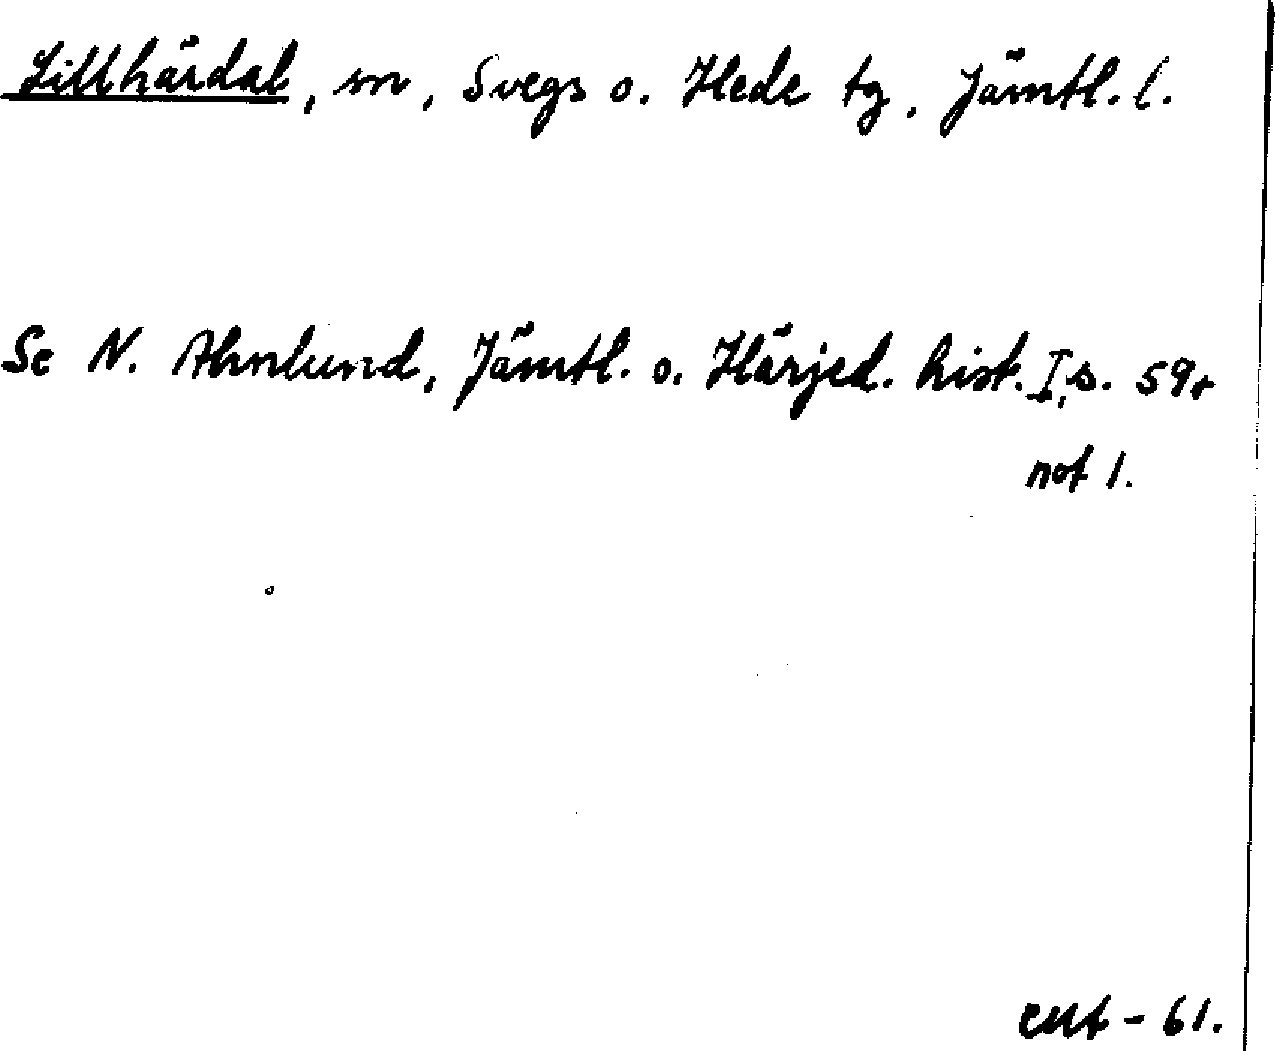 Lillhärdal, sn, Svegs o. Hede tg, Jämtl. l.
Se N. Ahnlund, Jämtl. o. Härjed. hist. I, s. 59,
not 1.
- 61.